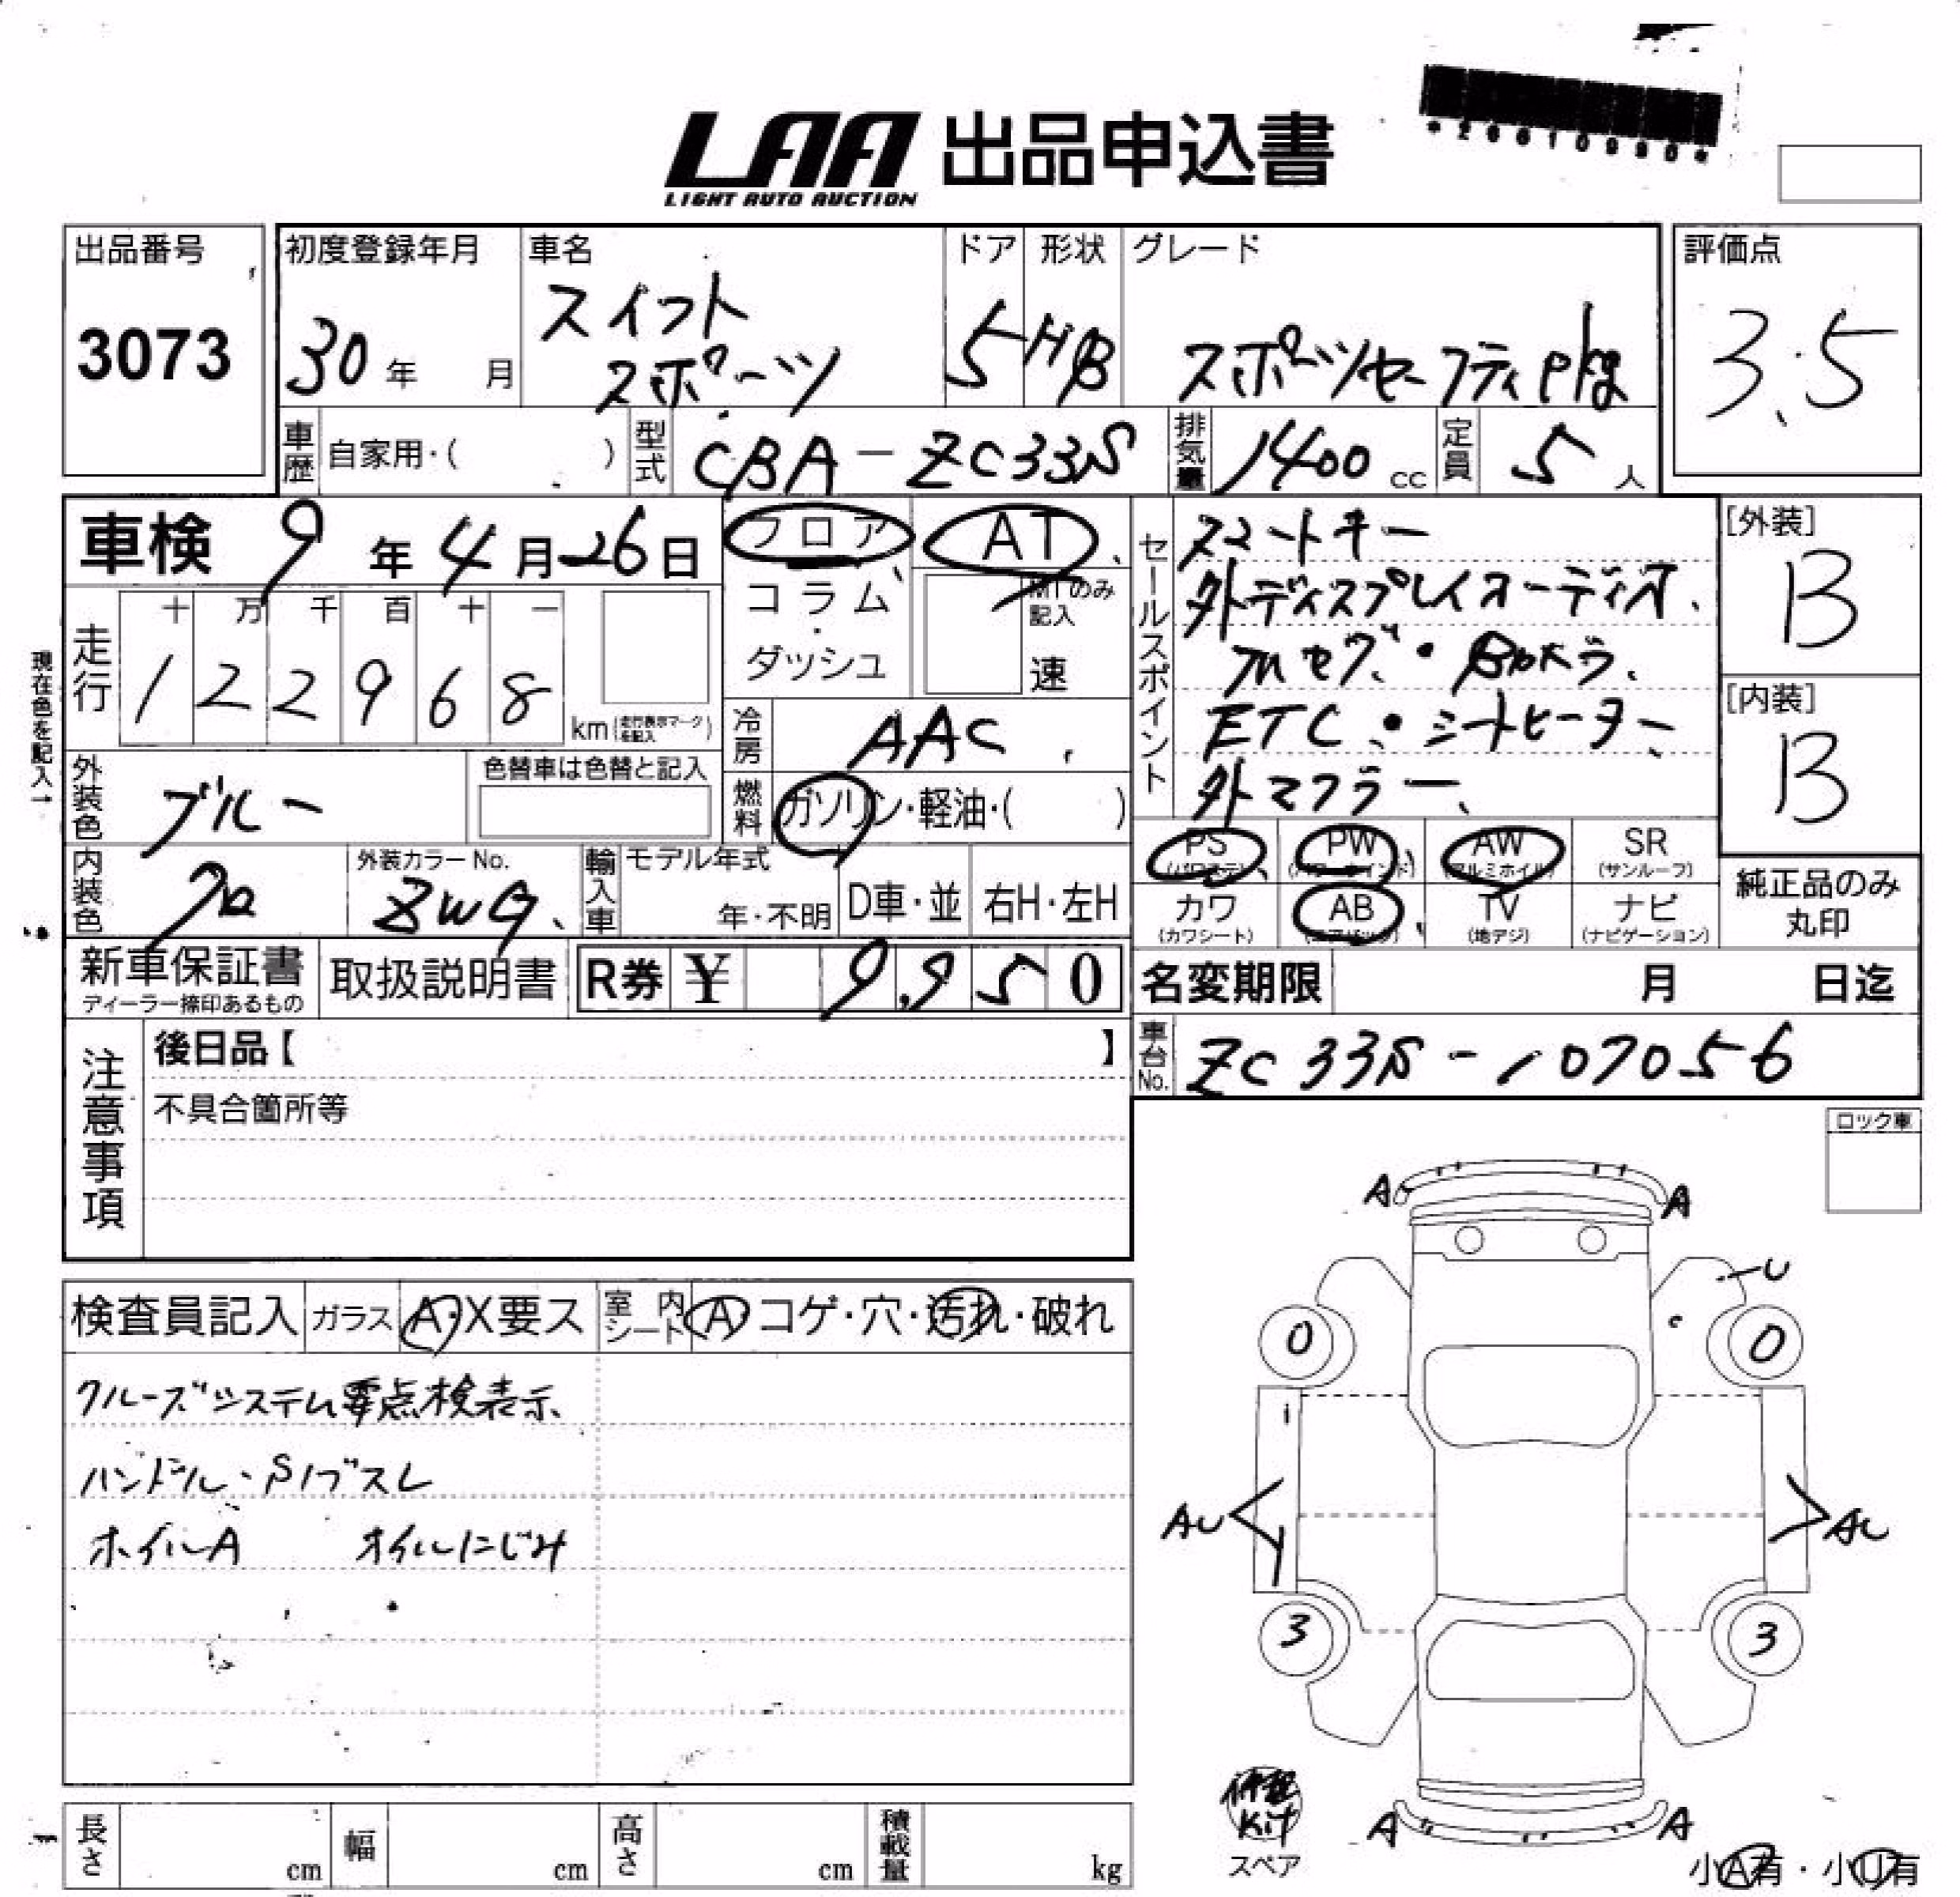 *26610990*
LAA 出品申込書
LIGHT AUTO AUCTION
出品番号
3073
初度登録年月
30年 月
車名
スイフト
スポーツ
ドア
5
形状
HB
グレード
スポーツセーフティpkg
評価点
3.5
車歴 自家用・( )
型式 CBA-ZC33S
排気量 1400 cc
定員 5 人
車検 9年4月26日
フロア
コラム
・
ダッシュ
AT
MTのみ記入
速
セールスポイント
スマートキー
外ディスプレイオーディオ.
フルセグ・Bカメラ.
ETC・シートヒーター
外マフラー
[外装]
B
[内装]
B
現在色を記入→
走行
十 万 千 百 十 一
1 2 2 9 6 8
km(走行表示マークを記入)
冷房 AAC
燃料 ガソリン・軽油・( )
外装色 ブルー
色替車は色替と記入
内装色 クロ
外装カラーNo.
ZWG
輸入車
モデル年式
年・不明
D車・並
右H・左H
PS (パワステ)
PW (パワーウインド)
AW (アルミホイル)
SR (サンルーフ)
カワ (カワシート)
AB (エアバック)
TV (地デジ)
ナビ (ナビゲーション)
純正品のみ
丸印
新車保証書
ディーラー捺印あるもの
取扱説明書
R券 ¥ 9,950
名変期限 月 日迄
車台No. ZC33S-107056
注意事項
後日品【 】
不具合箇所等
ロック車
検査員記入
ガラス A・X要ス
室内シート A・コゲ・穴・汚れ・破れ
クルーズシステム要点検表示
ハンドル・S/ブスレ
ホイルA オイルにじみ
A A
U
0 0
i
AU AU
3 3
修理
Kit
スペア
A A
小A有・小U有
長さ cm
幅 cm
高さ cm
積載量 kg